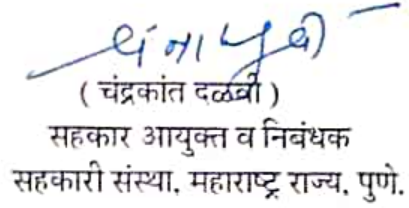 ( चंद्रकांत दळवी )
सहकार आयुक्त व निबंधक
सहकारी संस्था, महाराष्ट्र राज्य, पुणे.